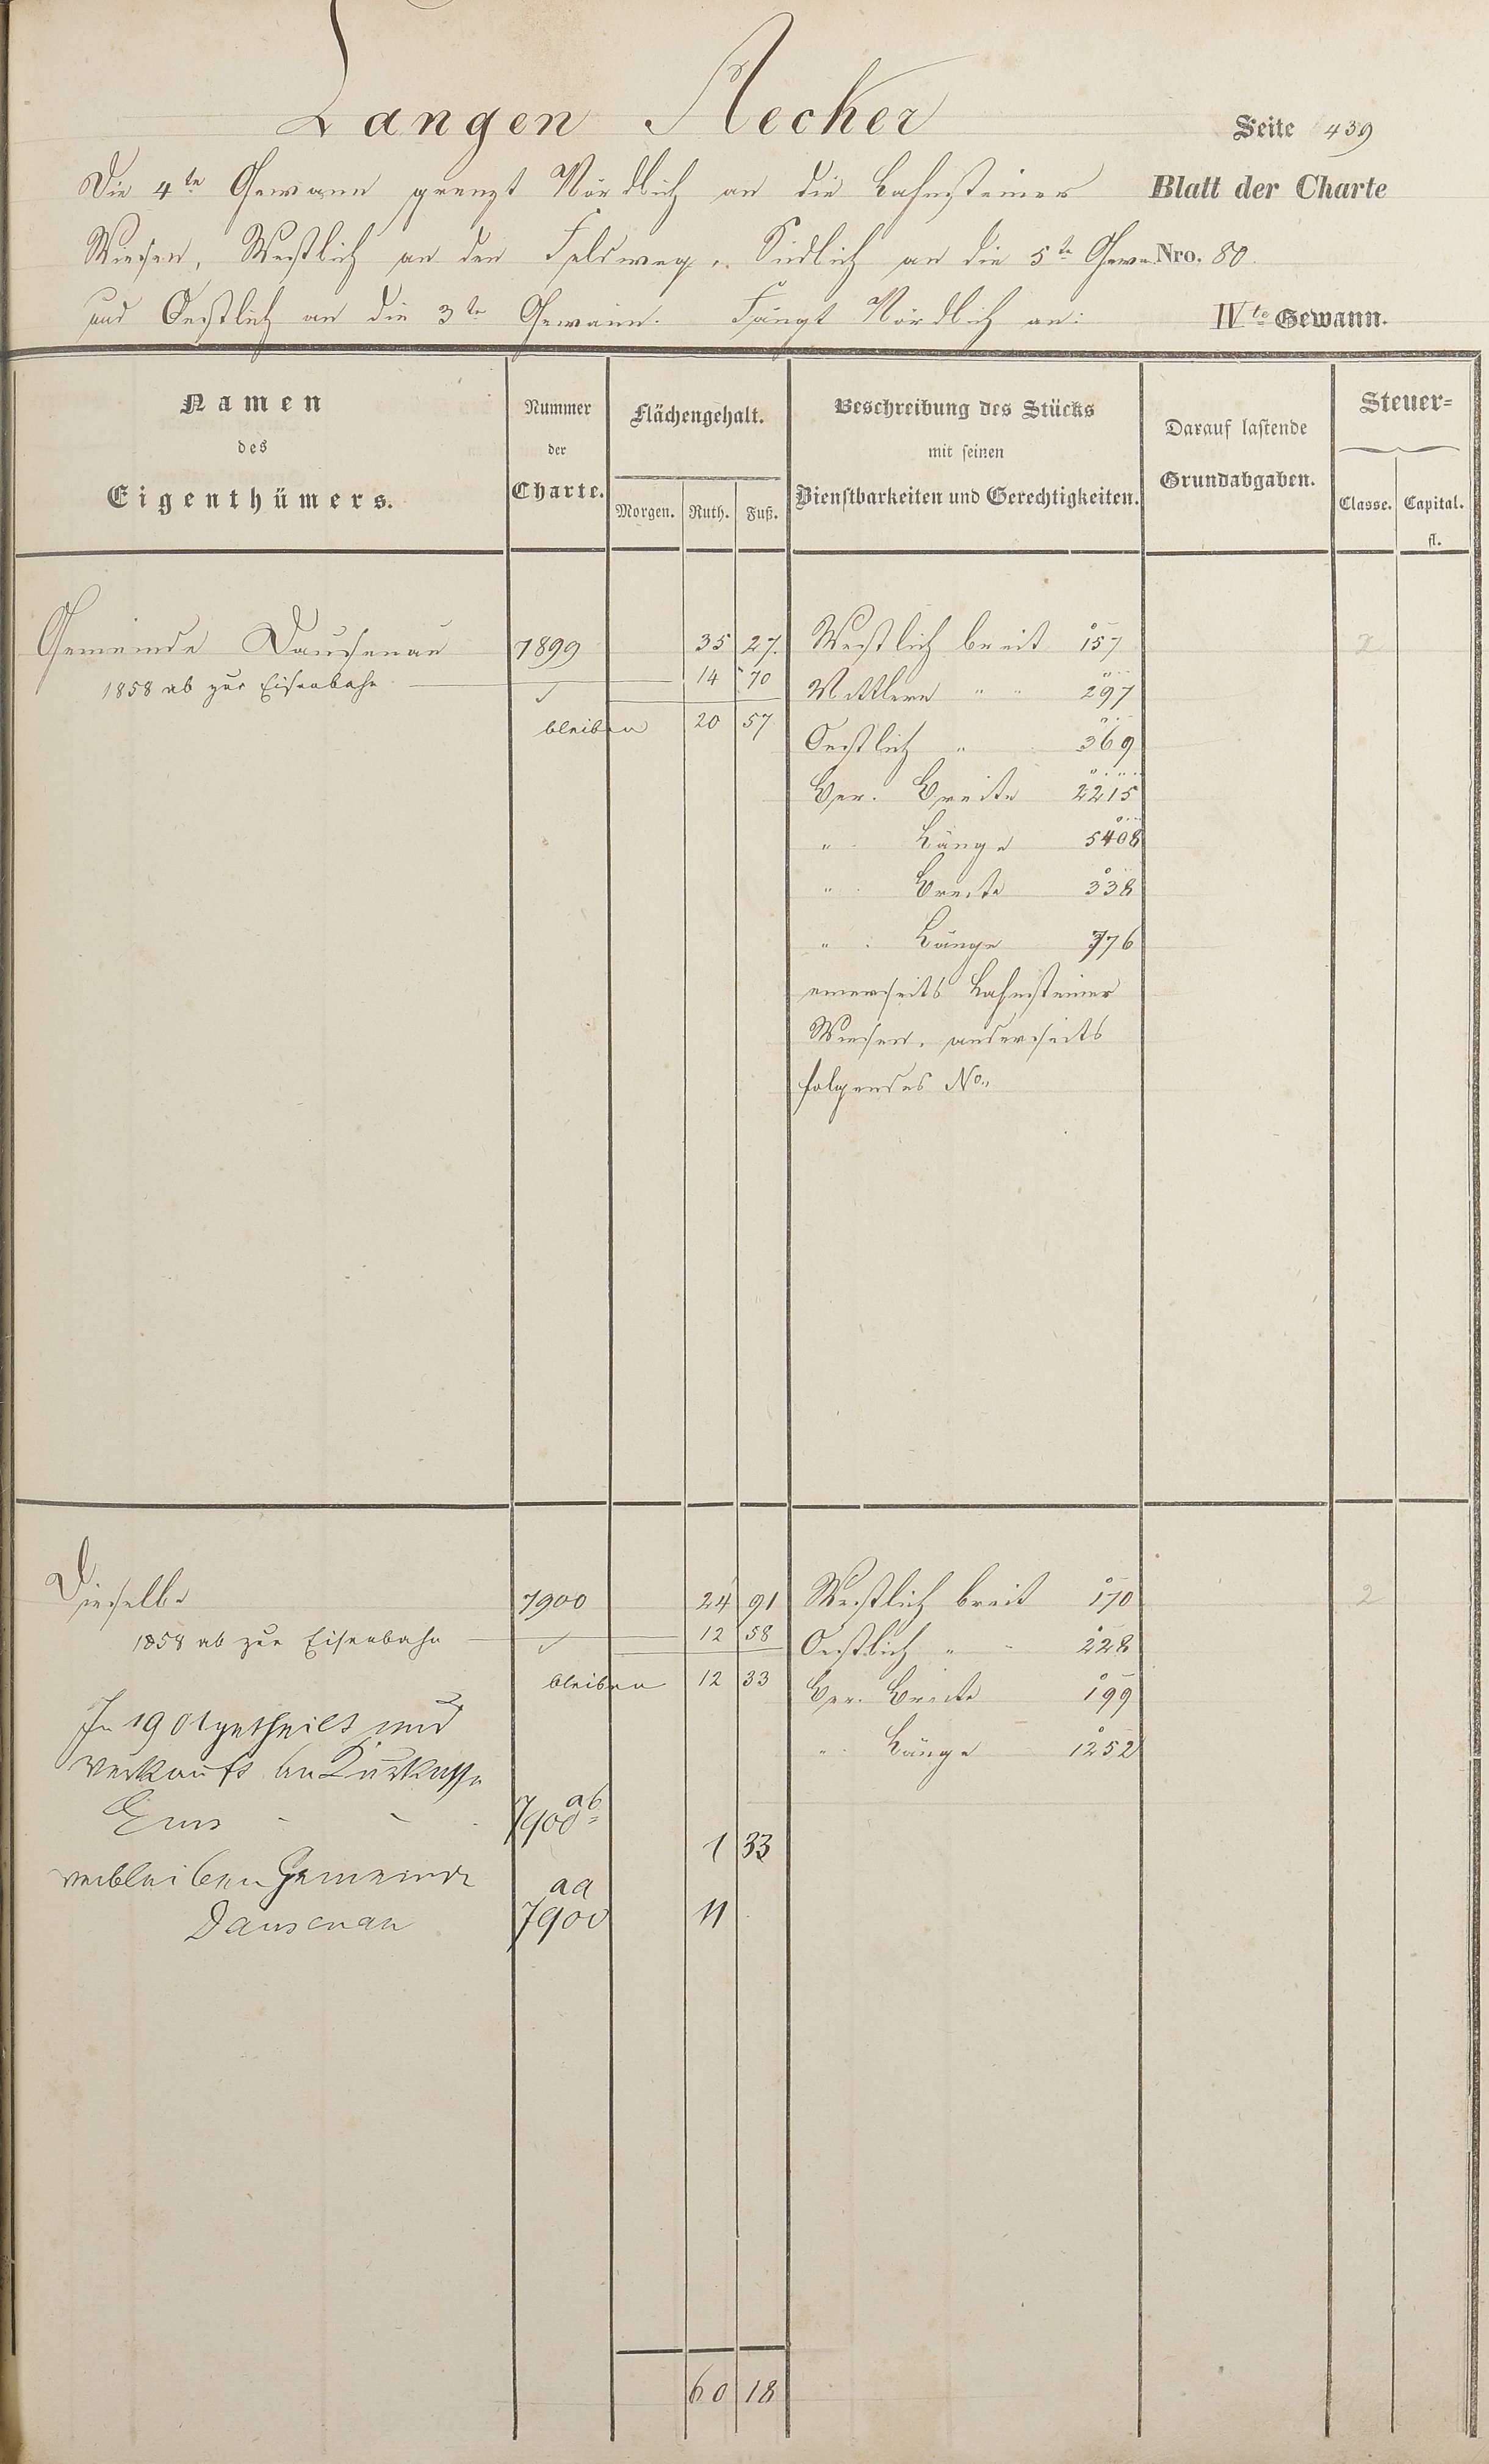 Langen Aecker
Seite 439
Die 4te Gewann grenzt Nördlich an die Lahnsteiner
Blatt der Charte
Wiesen, Westlich an den Feldweg, Südlich an die 5te Gewa
Nro. 80.
und Oestlich an die 3te Gewann. Fängt Nördlich an:
IVte Gewann.
Namen
des
Eigenthümers.
Nummer
der
Charte.
Flächengehalt.
Morgen. Ruth. Fuß.
Beschreibung des Stücks
mit seinen
Dienstbarkeiten und Gerechtigkeiten.
Darauf lastende
Grundabgaben.
Steuer=
Classe. Capital.
fl.
Gemeinde Dausenau 7899 35 27. Westlich breit 157 2
1858 ab zur Eisenbahn 14 70 Mittlere " " 297
bleiben 20 57 Oestlich " 369
Ver. Breite 2215
" Länge 5408
" Breite 338
" Länge 776
einerseits Lahnsteiner
Wiesen, anderseits
folgendes No.
Dieselbe 7900 24 91 Westlich breit 170 2
1858 ab zur Eisenbahn 12 58 Oestlich " 228
bleiben 12 33 Ver. Breite 199
In 1901 getheilt und
" Länge 1252
verkauft an Kurkasse
Ems 7900 ab 1 33
verbleiben Gemeinde
Dausenau 7900 aa 11
60 18